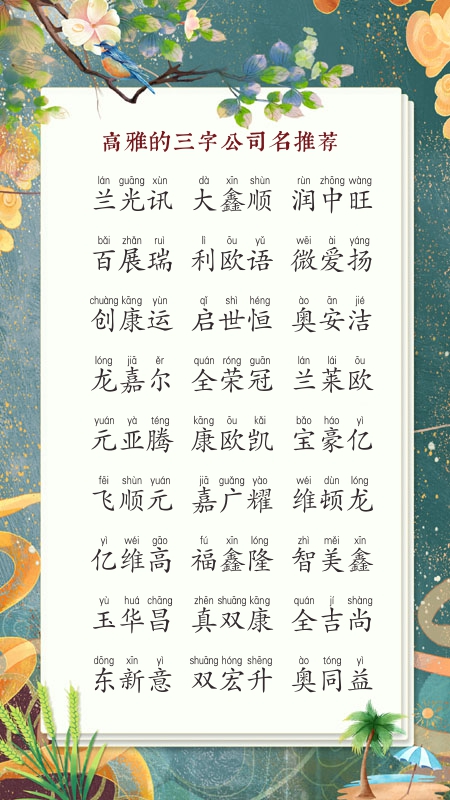 高雅的三字公司名推荐
lán guāng xùn dà xīn shùn rùn zhōng wàng
兰光讯 大鑫顺 润中旺
bǎi zhǎn ruì lì ōu yǔ wēi ài yáng
百展瑞 利欧语 微爱扬
chuàng kāng yùn qǐ shì héng ào ān jié
创康运 启世恒 奥安洁
lóng jiā ěr quán róng guān lán lái ōu
龙嘉尔 全荣冠 兰莱欧
yuán yà téng kāng ōu kǎi bǎo háo yì
元亚腾 康欧凯 宝豪亿
fēi shùn yuán jiā guǎng yào wéi dùn lóng
飞顺元 嘉广耀 维顿龙
yì wéi gāo fú xīn lóng zhì měi xīn
亿维高 福鑫隆 智美鑫
yù huá chāng zhēn shuāng kāng quán jí shàng
玉华昌 真双康 全吉尚
dōng xīn yì shuāng hóng shēng ào tóng yì
东新意 双宏升 奥同益